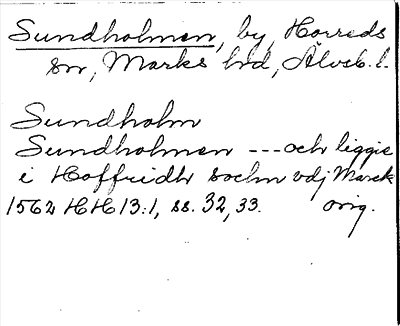 Sundholmen, by, Horreds
sn, Marks hd, Älvsb. l.
Sundholm
Sundholmen --- och liggie
i Hoffridh sochn vdj Marck
1562 HH 13:1, ss. 32, 33. orig.